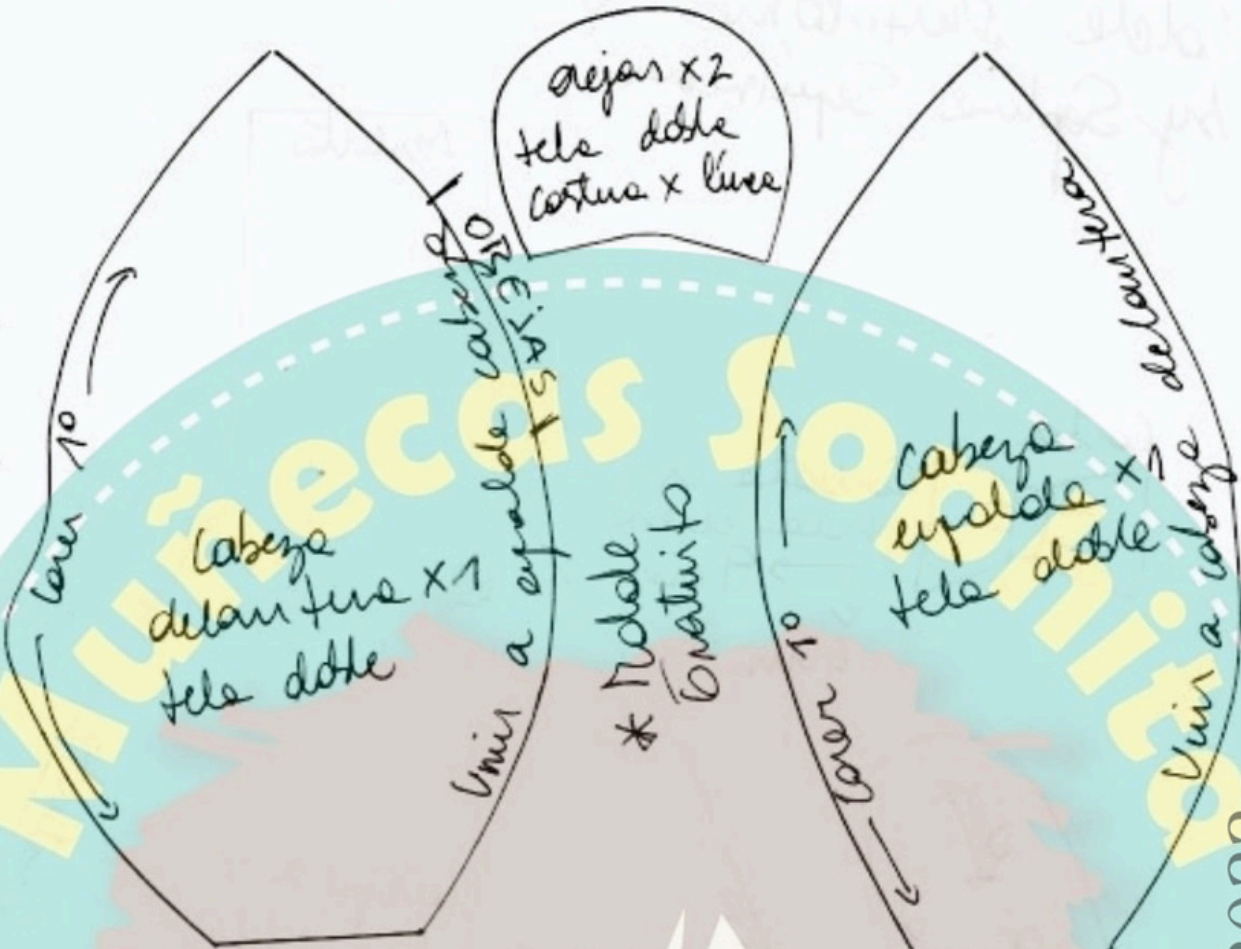 orejas x2
tela doble
costura x línea
OREJAS
Coser 1º
Cabeza
delantera x1
tela doble
Unir a espalda cabeza
* Molde
Gratuito
Cabeza
espalda x1
tela doble
Coser 1º
Unir a cabeza delantera
Muñecas Sophita